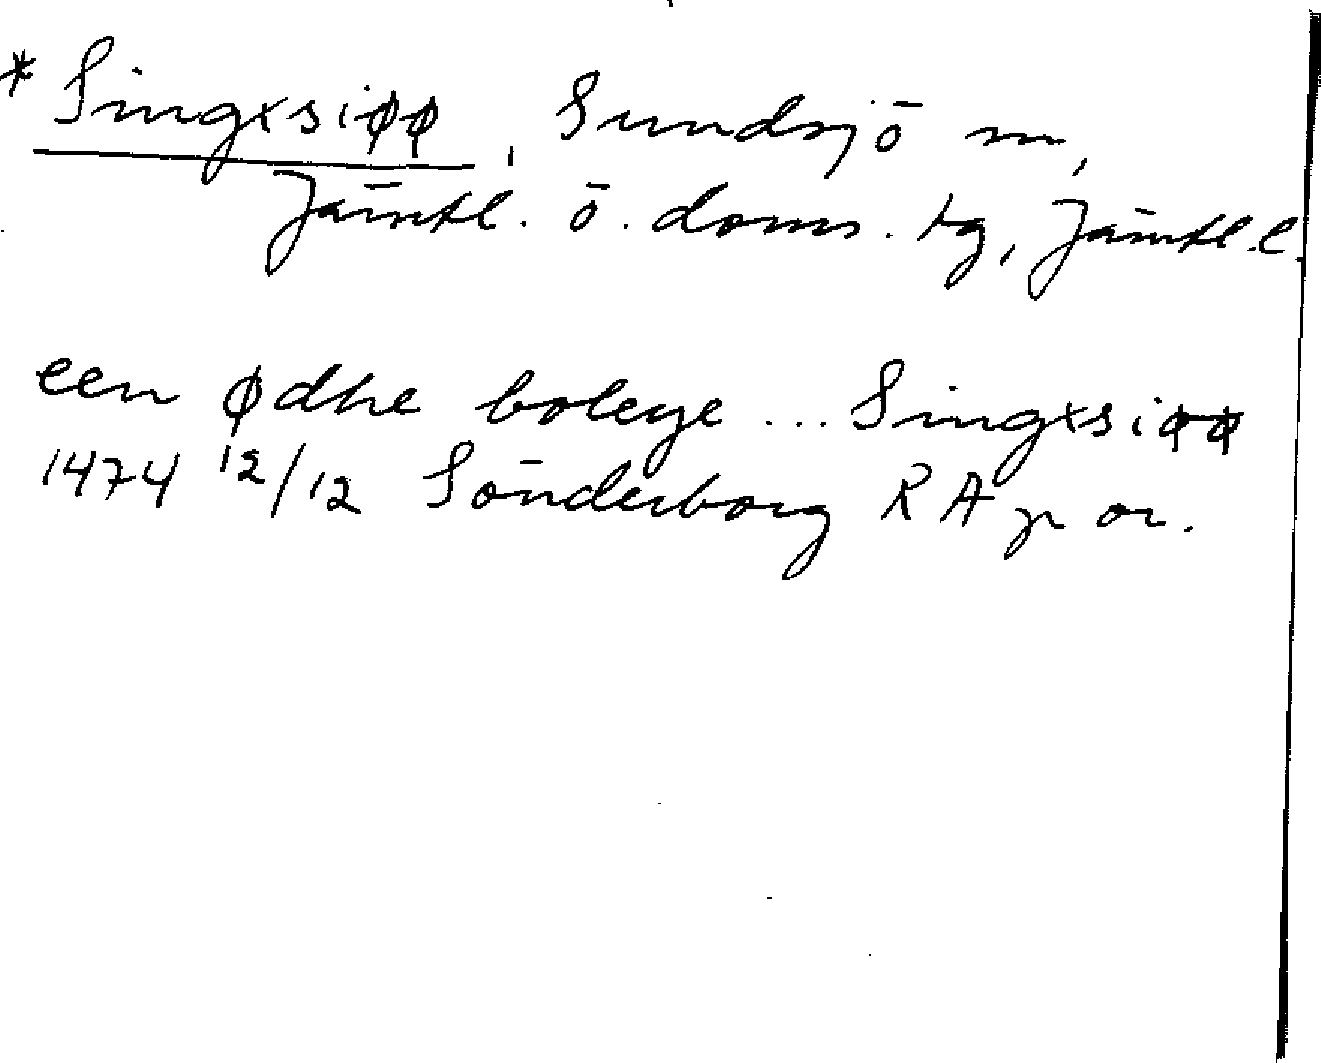 * Singxsiøø, Sundsjö sn,
Jämtl. ö. doms. tg, Jämtl. l.
een ødhe boleye ... Singxsiøø
1474 12/12 Sönderborg RA p or.